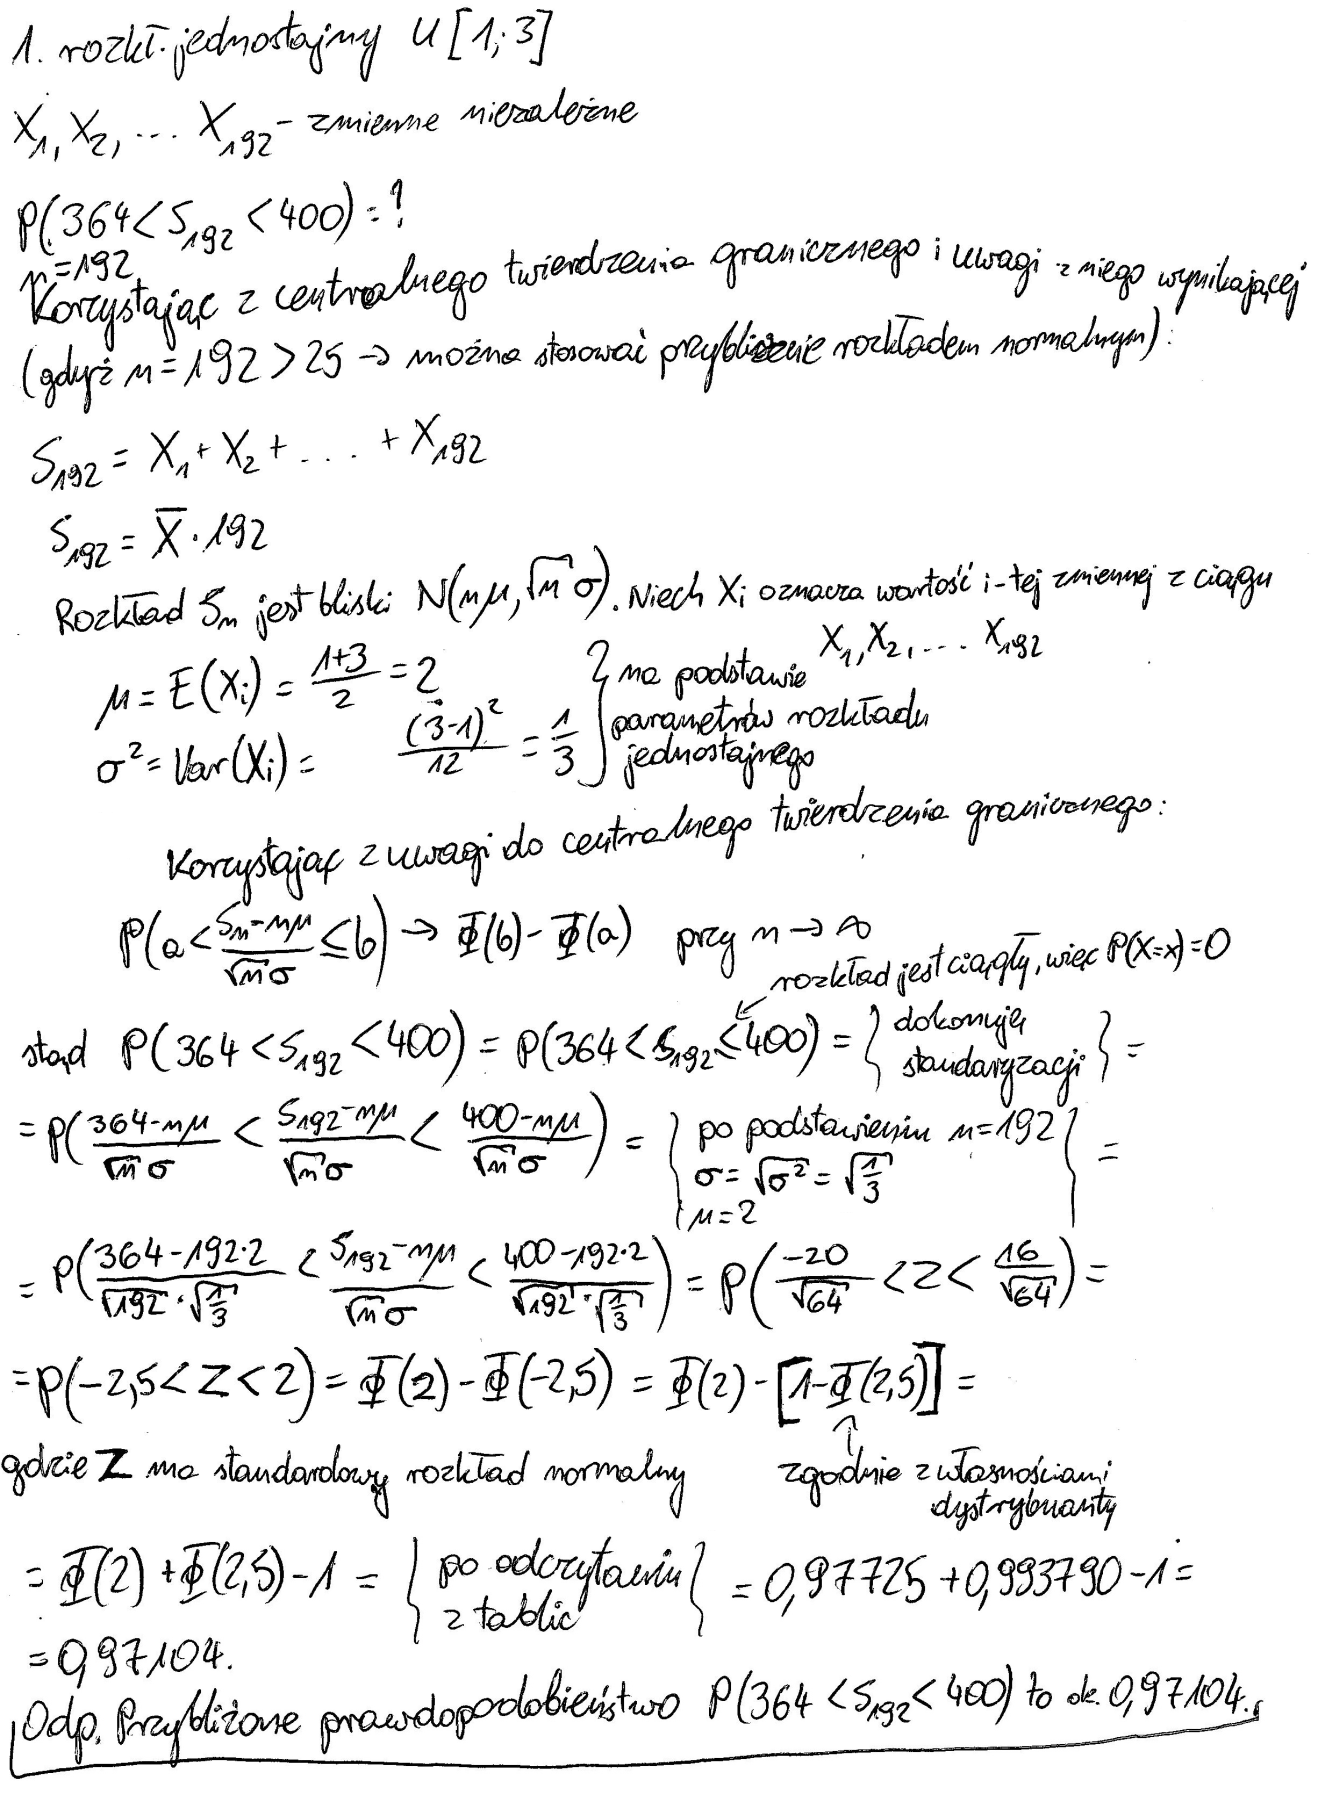 1. rozkł. jednostajny U[1; 3]
X₁, X₂, ... X₁₉₂ - zmienne niezależne
P(364 < S₁₉₂ < 400) = ?
n = 192
Korzystając z centralnego twierdzenia granicznego i uwagi z niego wynikającej
(gdyż n = 192 > 25 → można stosować przybliżenie rozkładem normalnym):
S₁₉₂ = X₁ + X₂ + ... + X₁₉₂
S₁₉₂ = X̄ · 192
Rozkład Sₙ jest bliski N(nμ, √n σ). Niech Xi oznacza wartość i-tej zmiennej z ciągu
X₁, X₂, ... X₁₉₂
μ = E(Xi) = (1+3)/2 = 2
σ² = Var(Xi) = (3-1)²/12 = 1/3 } na podstawie
parametrów rozkładu
jednostajnego
Korzystając z uwagi do centralnego twierdzenia granicznego:
P(a < (Sₙ - nμ)/(√n σ) ≤ b) → Φ(b) - Φ(a) przy n → ∞
rozkład jest ciągły, więc P(X=x) = 0
stąd P(364 < S₁₉₂ < 400) = P(364 < S₁₉₂ ≤ 400) = { dokonuję
standaryzacji } =
= P((364 - nμ)/(√n σ) < (S₁₉₂ - nμ)/(√n σ) < (400 - nμ)/(√n σ)) = { po podstawieniu n = 192
σ = √σ² = √(1/3)
μ = 2 } =
= P((364 - 192·2)/(√192 · √(1/3)) < (S₁₉₂ - nμ)/(√n σ) < (400 - 192·2)/(√192 · √(1/3))) = P(-20/√64 < Z < 16/√64) =
= P(-2,5 < Z < 2) = Φ(2) - Φ(-2,5) = Φ(2) - [1 - Φ(2,5)] =
gdzie Z ma standardowy rozkład normalny
zgodnie z własnościami
dystrybuanty
= Φ(2) + Φ(2,5) - 1 = { po odczytaniu
z tablic } = 0,97725 + 0,993790 - 1 =
= 0,97104.
Odp. Przybliżone prawdopodobieństwo P(364 < S₁₉₂ < 400) to ok. 0,97104.